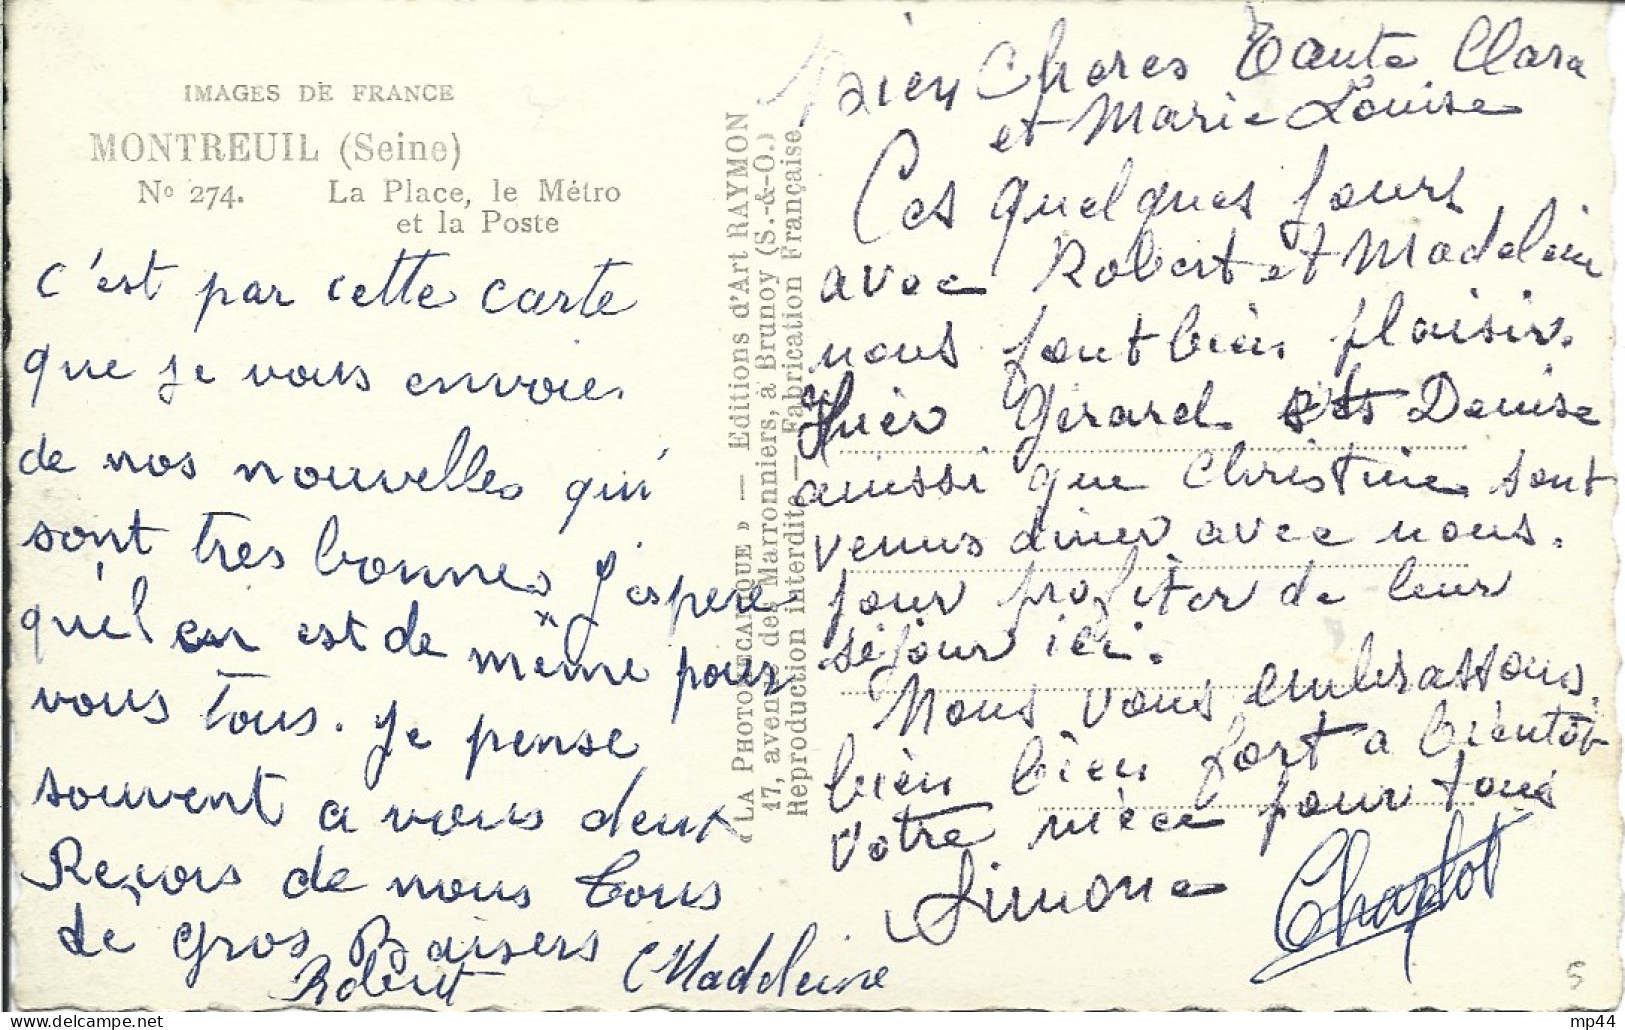 IMAGES DE FRANCE
MONTREUIL (Seine)
Nº 274. La Place, le Métro
et la Poste
c'est par cette carte
que je vous envoie
de nos nouvelles qui
sont tres bonnes j'espere
qu'il en est de même pour
vous tous. Je pense
souvent a vous deux
Reçois de nous tous
de gros Baisers
Robert Madeleine
« LA PHOTOMECANIQUE » — Editions d'Art RAYMON
17, avenue des Marronniers, à Brunoy (S.-&-O.)
Reproduction interdite — Fabrication Française
Bien Cheres Tante Clara
et Marie Louise
Ces quelques jours
avec Robert et Madeleine
nous font bien plaisir.
Hier Gerard et Denise
ainssi que Christine sont
venus diner avec nous.
pour profiter de leur
séjour ici.
Nous vous embrassons
bien bien fort a bientôt
votre niece pour tous
Simone
5
mp44